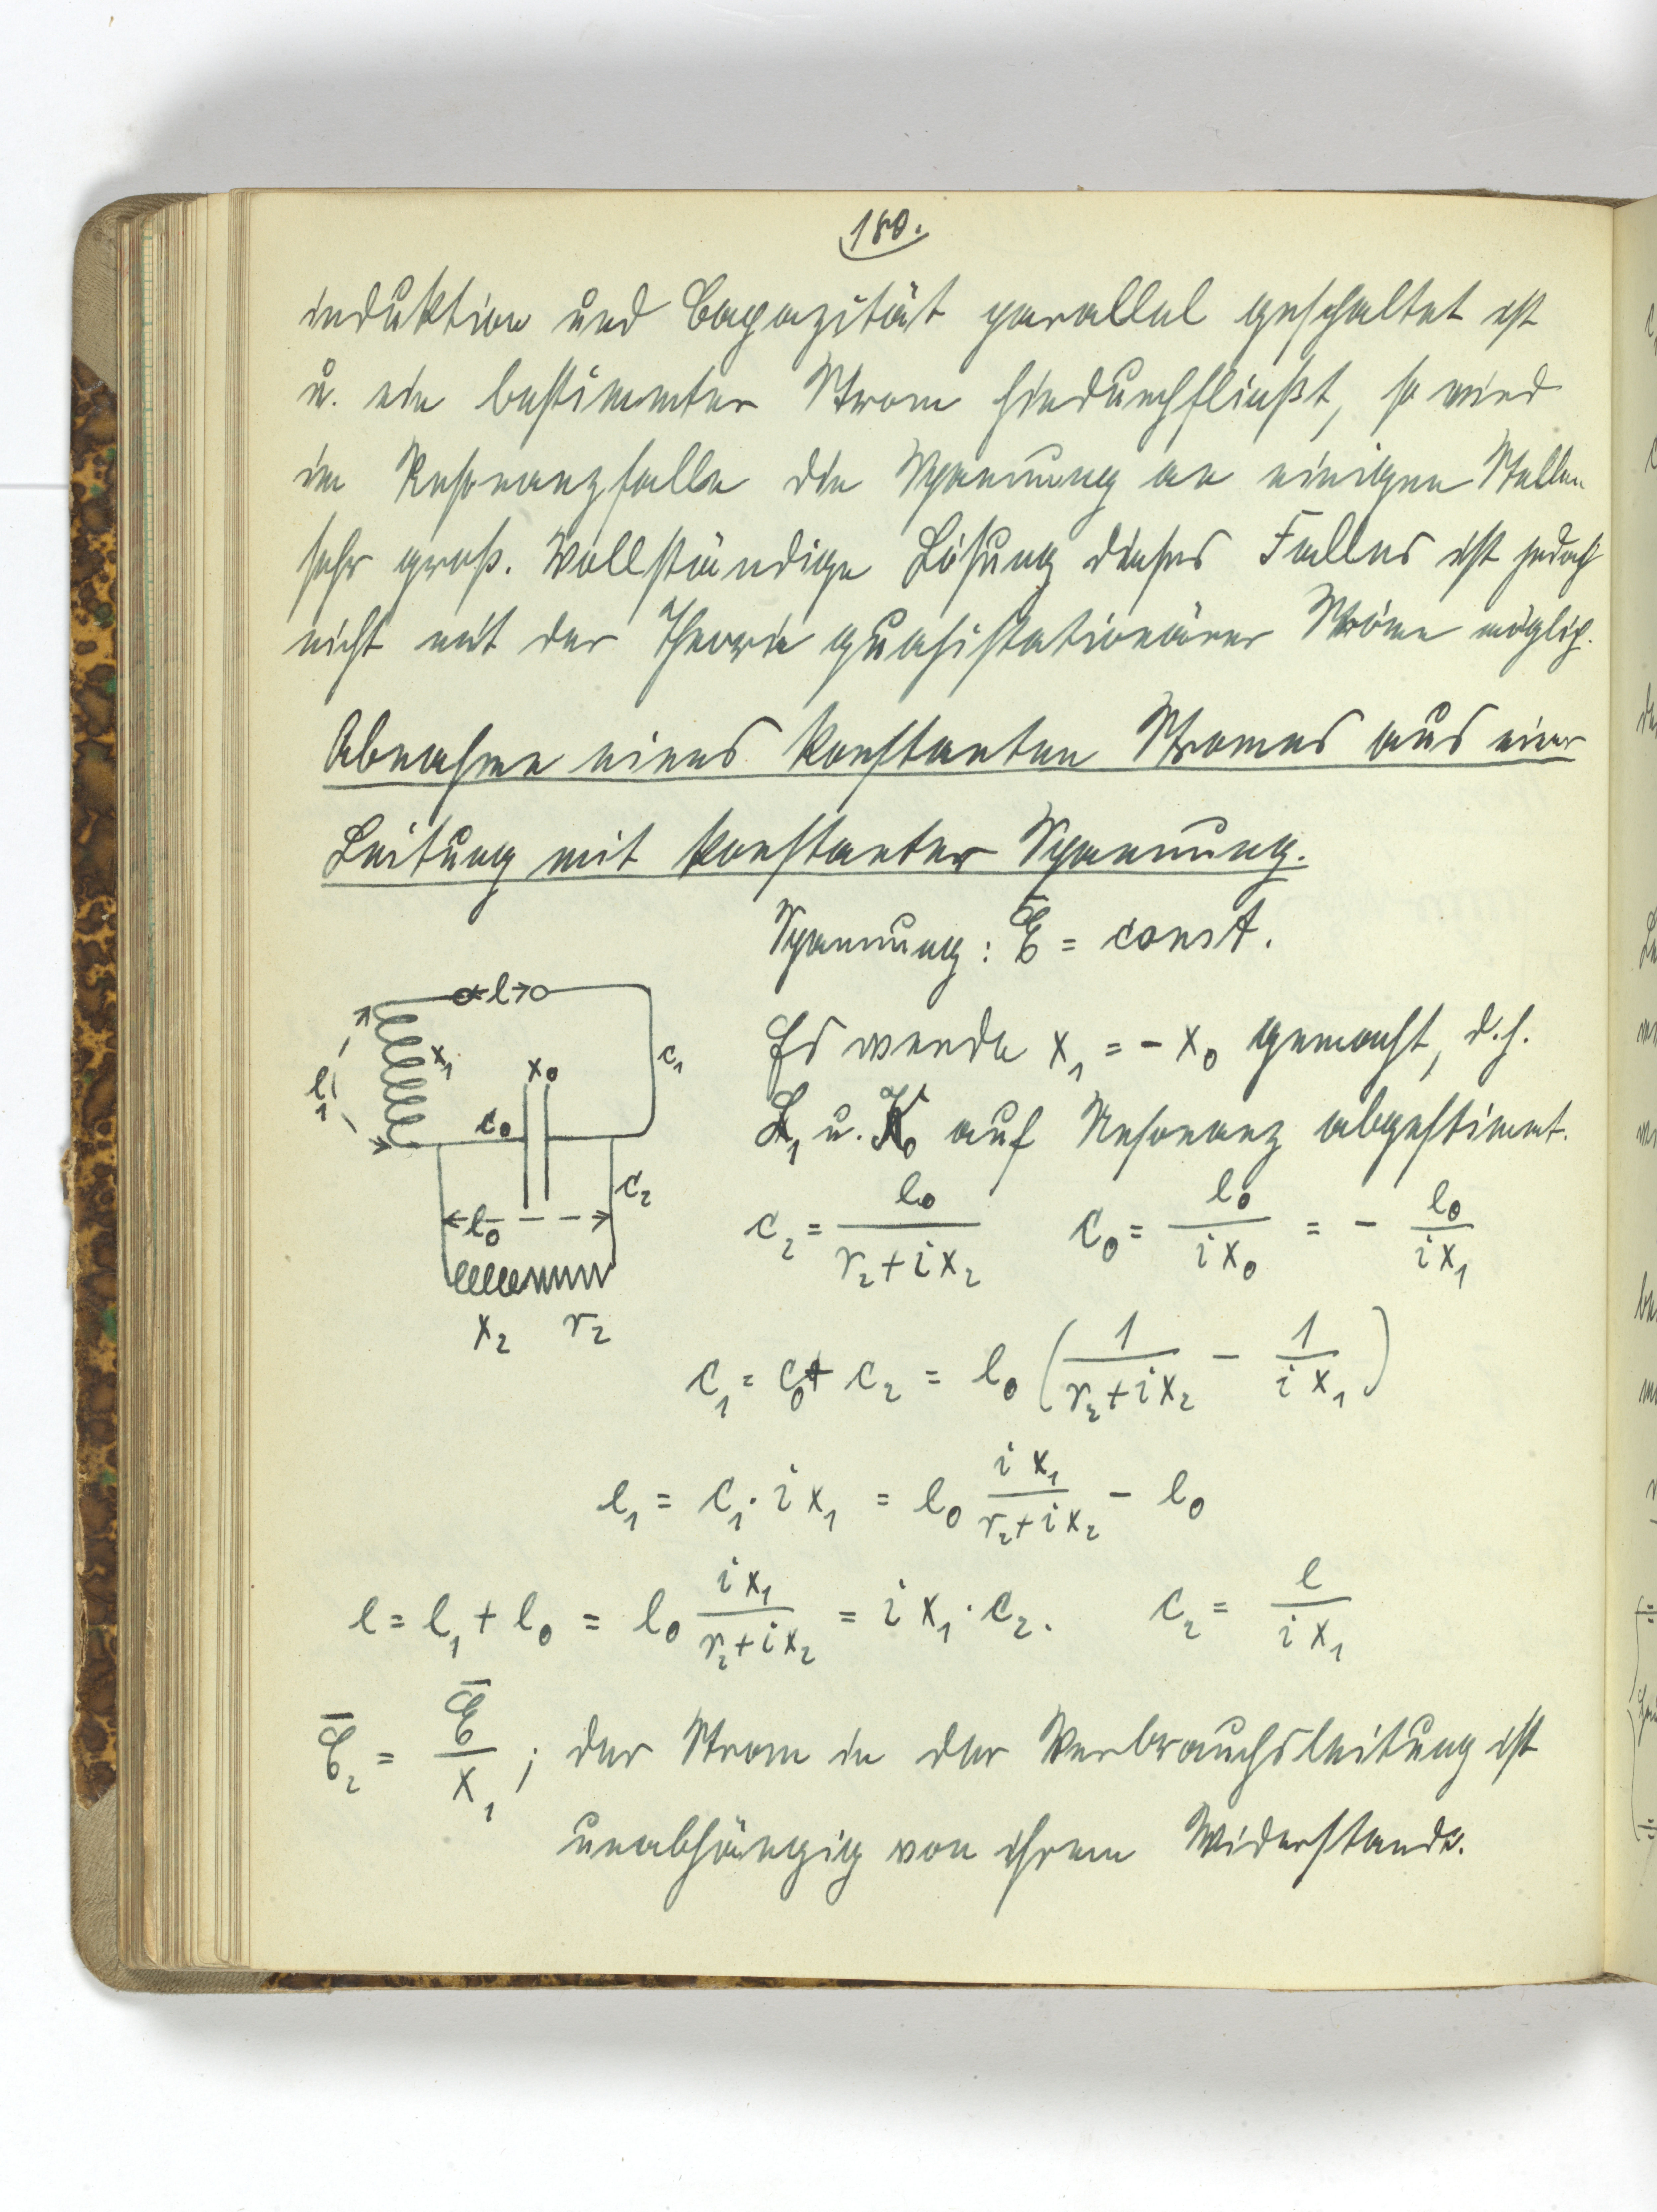 180.
induktion und Capazität parallel geschaltet ist
u. ein bestimmter Strom hindurchfließt, so wird
im Resonanzfalle die Spannung an einigen Stellen
sehr groß. Vollständige Lösung dieses Falles ist jedoch
nicht mit der Theorie quasistationärer Ströme möglich.
Abnahme eines konstanten Stromes aus einer
Leitung mit konstanter Spannung.
Spannung: Ē = const.
Es werde x₁ = - x₀ gemacht, d.h.
L₁ u. K₀ auf Resonanz abgestimmt.
e
e₁
x₁
x₀
c₁
c₀
c₂
e₀
x₂ r₂
c₂ = e₀/(r₂+ix₂) c₀ = e₀/(ix₀) = - e₀/(ix₁)
c₁ = c₀ + c₂ = e₀ (1/(r₂+ix₂) - 1/(ix₁))
e₁ = c₁·ix₁ = e₀ ix₁/(r₂+ix₂) - e₀
e = e₁ + e₀ = e₀ ix₁/(r₂+ix₂) = ix₁·c₂. c₂ = e/(ix₁)
C̄₂ = Ē/x₁; der Strom in der Verbrauchsleitung ist
unabhängig von ihrem Widerstande.